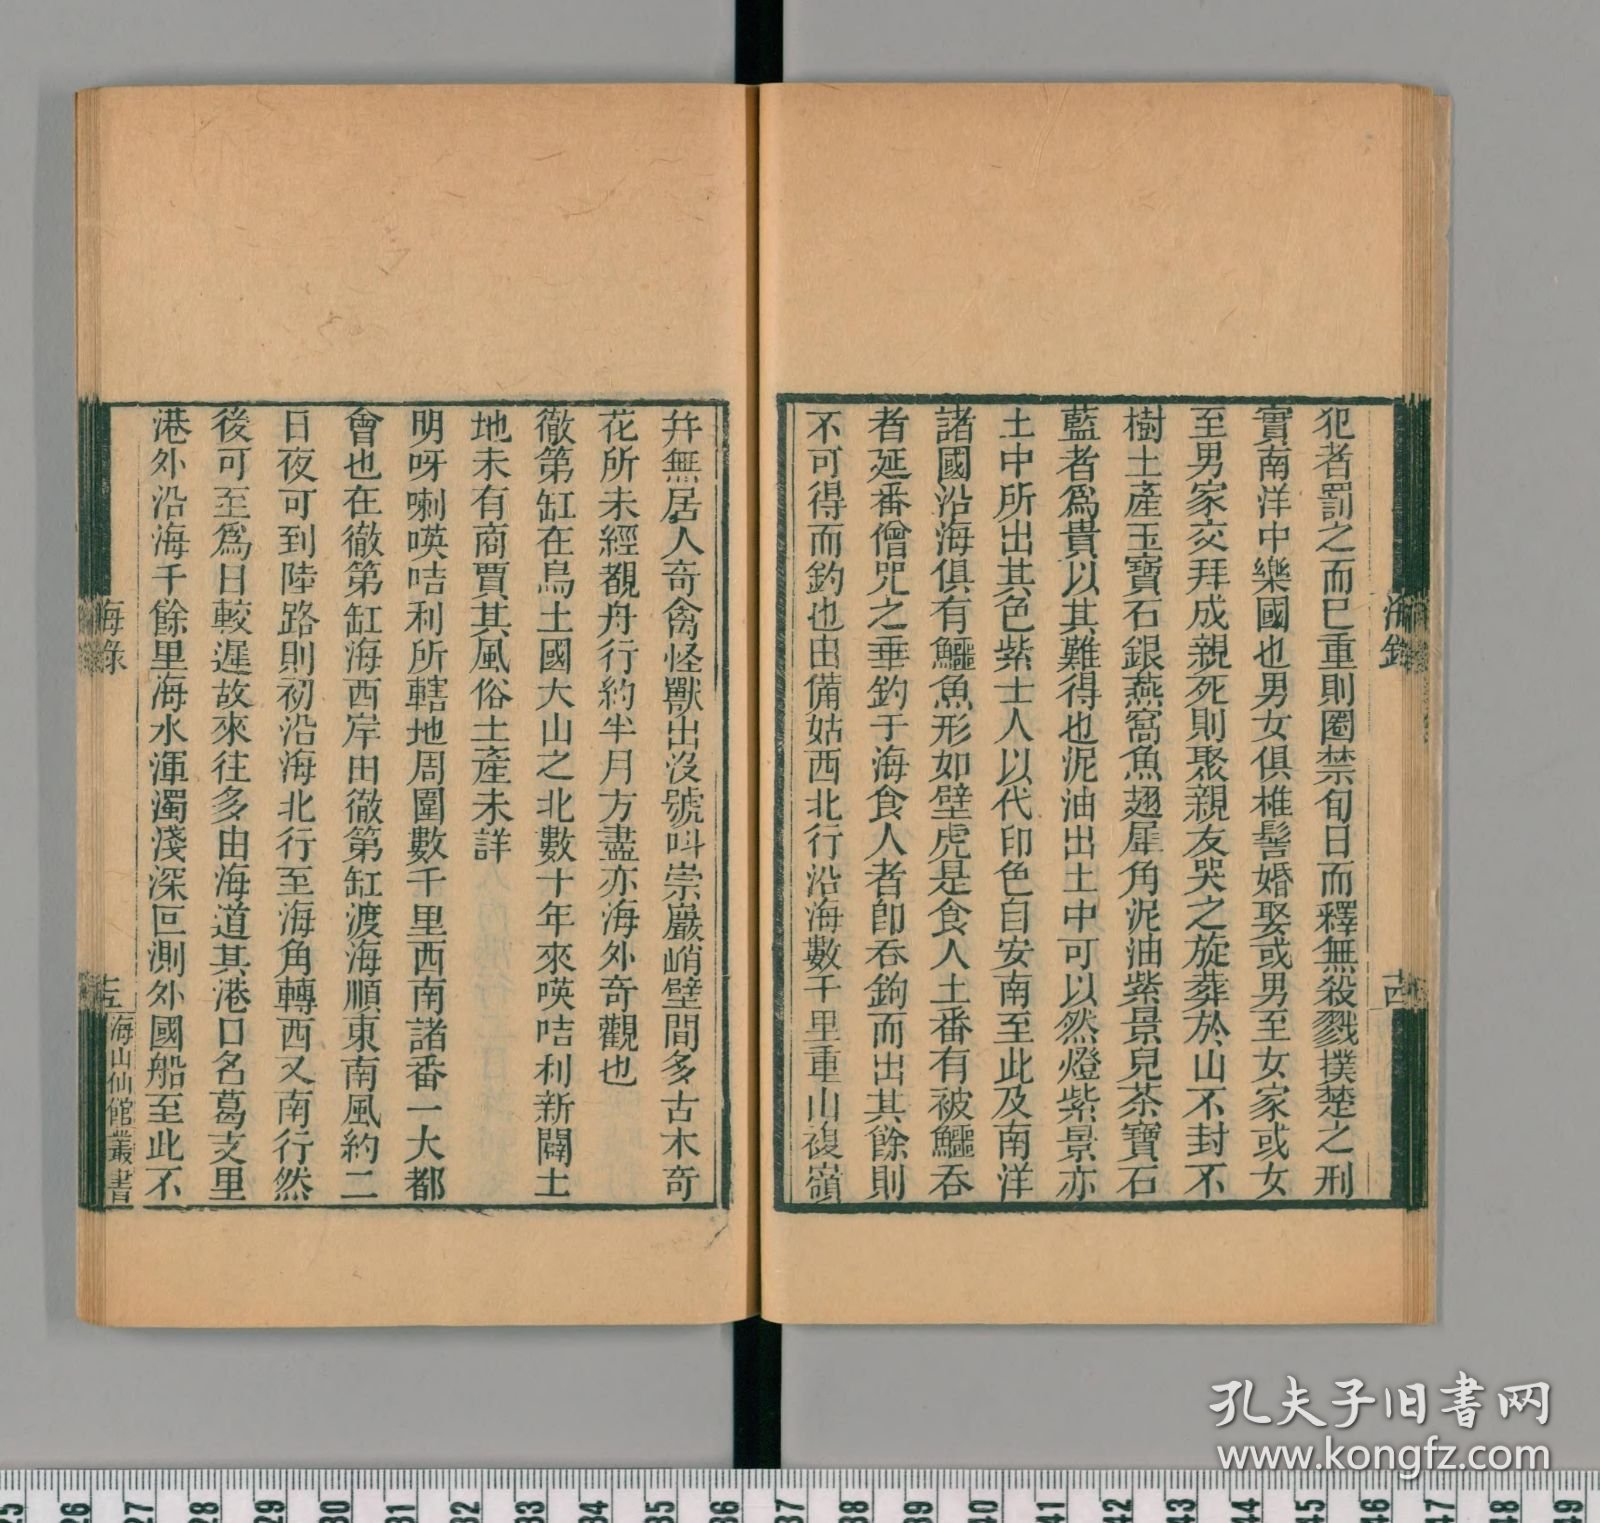 海錄
十四
犯者罰之而已重則圈禁旬日而釋無殺戮撲楚之刑
實南洋中樂國也男女俱椎髻婚娶或男至女家或女
至男家交拜成親死則聚親友哭之旋葬於山不封不
樹土產玉寶石銀燕窩魚翅犀角泥油紫景兒茶寶石
藍者爲貴以其難得也泥油出土中可以然燈紫景亦
土中所出其色紫土人以代印色自安南至此及南洋
諸國沿海俱有鱷魚形如壁虎是食人土番有被鱷吞
者延番僧咒之垂釣于海食人者卽吞鉤而出其餘則
不可得而釣也由備姑西北行沿海數千里重山複嶺
幷無居人奇禽怪獸出沒號叫崇巖峭壁間多古木奇
花所未經覩舟行約半月方盡亦海外奇觀也
徹第缸在烏土國大山之北數十年來唊咭利新闢土
地未有商賈其風俗土產未詳
明呀喇唊咭利所轄地周圍數千里西南諸番一大都
會也在徹第缸海西岸由徹第缸渡海順東南風約二
日夜可到陸路則初沿海北行至海角轉西又南行然
後可至爲日較遲故來往多由海道其港口名葛支里
港外沿海千餘里海水渾濁淺深叵測外國船至此不
海錄
十五
海山仙館叢書
孔夫子旧书网
www.kongfz.com
25 26 27 28 29 30 31 32 33 34 35 36 37 38 39 40 41 42 43 44 45 46 47 48 49